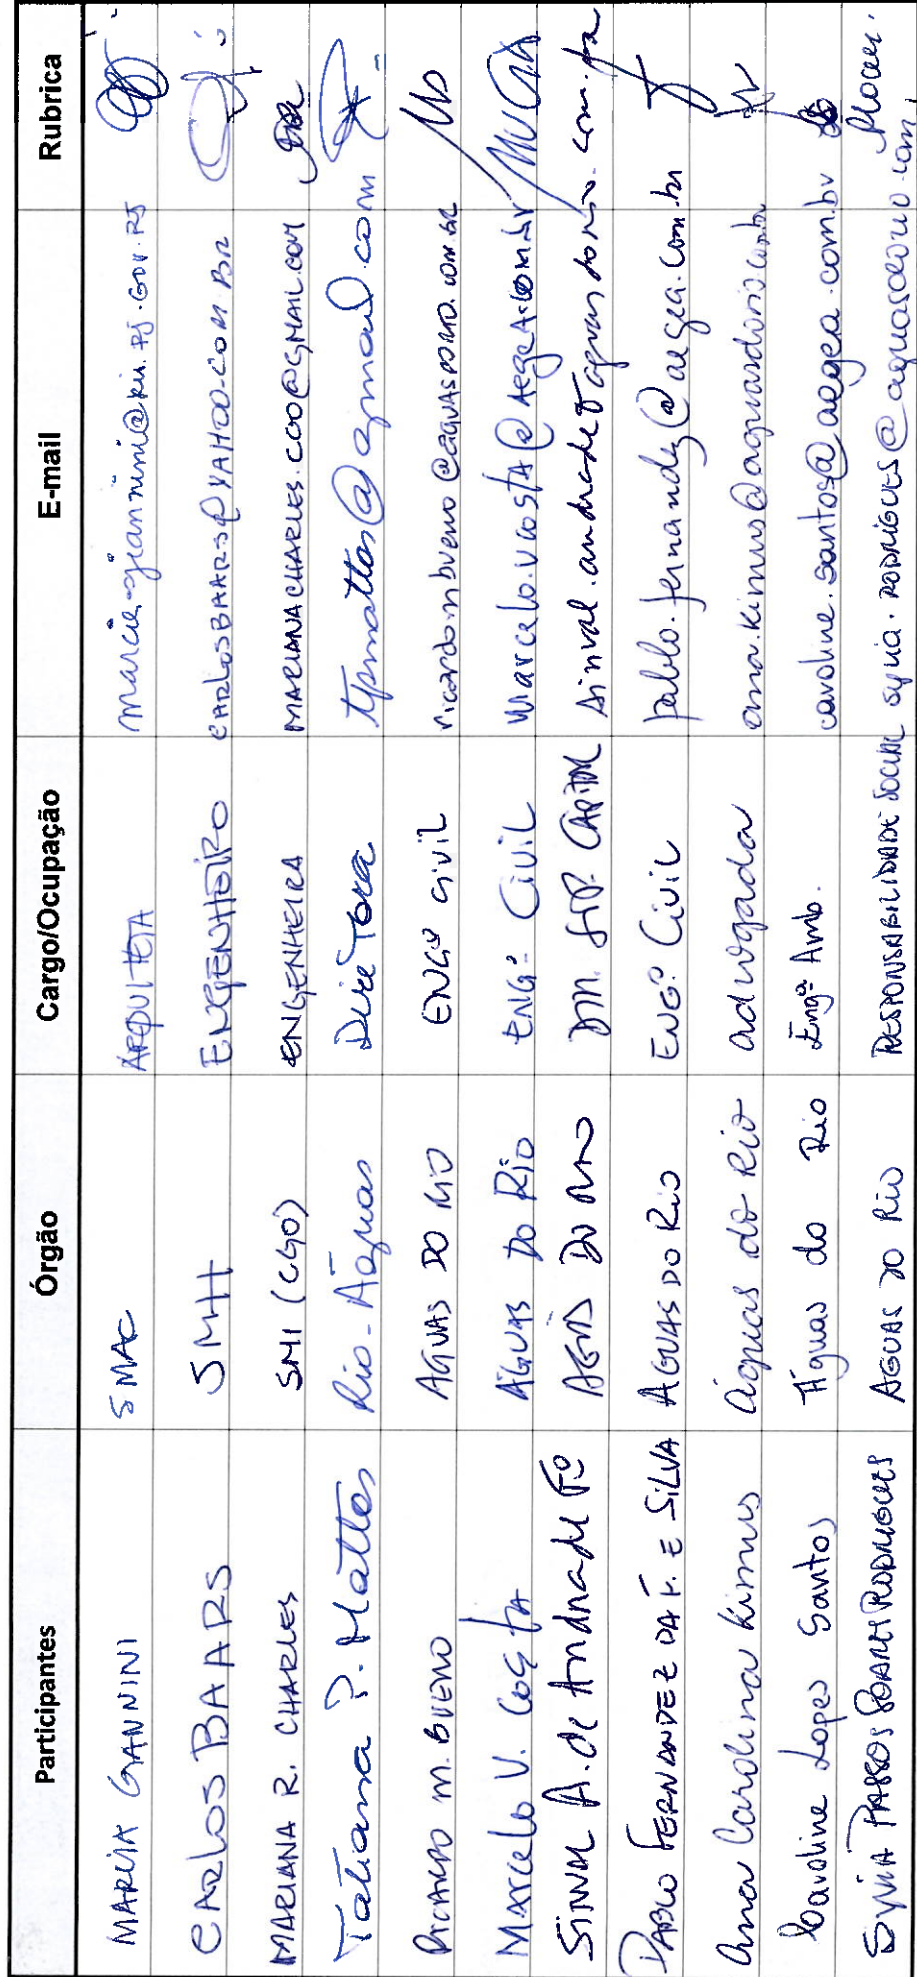 Participantes Órgão Cargo/Ocupação E-mail Rubrica
MARCIA GIANNINI SMAC ARQUITETA marcia.giannini@rio.rj.gov.rj
CARLOS BAARS SMH ENGENHEIRO CARLOSBAARS@YAHOO.COM.BR
MARIANA R. CHARLES SMI (CGO) ENGENHEIRA MARIANACHARLES.CGO@GMAIL.COM
Tatiana P. Mattos Rio-Águas Diretora tpmattos@gmail.com
RICARDO M. BUENO AGUAS DO RIO ENGº CIVIL ricardo.mbueno@aguasdorio.com.br
Marcelo V. Costa ÁGUAS DO RIO ENGº CIVIL marcelo.vcosta@aegea.com.br
SINVAL A. de Andrade Fº DO RIO CAPITAL sinval.andrade@aguasdorio.com.br
PABLO FERNANDEZ DA F. E SILVA AGUAS DO RIO ENGº CIVIL pablo.fernandez@aegea.com.br
Ana Carolina Kimus águas do Rio advogada ana.kimus@aguasdorio.com.br
Caroline Lopes Santos Águas do Rio Engª Amb. caroline.santos@aegea.com.br
Sylvia PASSOS SOARES RODRIGUES AGUAS DO RIO RESPONSABILIDADE SOCIAL sylvia.RODRIGUES@aguasdorio.com.